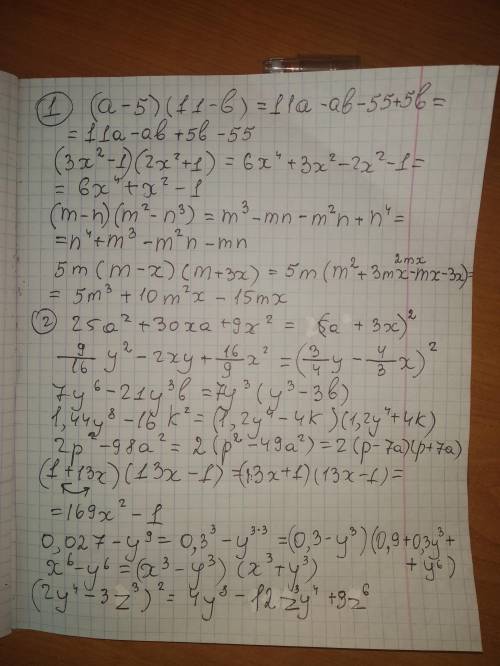 ① (a-5)(11-b) = 11a - ab - 55 + 5b =
= 11a - ab + 5b - 55
(3x² - 1)(2x² + 1) = 6x⁴ + 3x² - 2x² - 1 =
= 6x⁴ + x² - 1
(m-n)(m² - n³) = m³ - mn - m²n + n⁴ =
= n⁴ + m³ - m²n - mn
2mx
5m(m-x)(m+3x) = 5m(m² + 3mx - mx - 3x) =
= 5m³ + 10m²x - 15mx
② 25a² + 30xa + 9x² = (5a + 3x)²
9/16 y² - 2xy + 16/9 x² = (3/4 y - 4/3 x)²
7y⁶ - 21y³b = 7y³(y³ - 3b)
1,44y⁸ - 16k² = (1,2y⁴ - 4k)(1,2y⁴ + 4k)
2p² - 98a² = 2(p² - 49a²) = 2(p - 7a)(p + 7a)
(1 + 13x)(13x - 1) = (13x + 1)(13x - 1) =
= 169x² - 1
0,027 - y⁹ = 0,3³ - y³·³ = (0,3 - y³)(0,9 + 0,3y³ +
+ y⁶)
x⁶ - y⁶ = (x³ - y³)(x³ + y³)
(2y⁴ - 3z³)² = 4y⁸ - 12z³y⁴ + 9z⁶